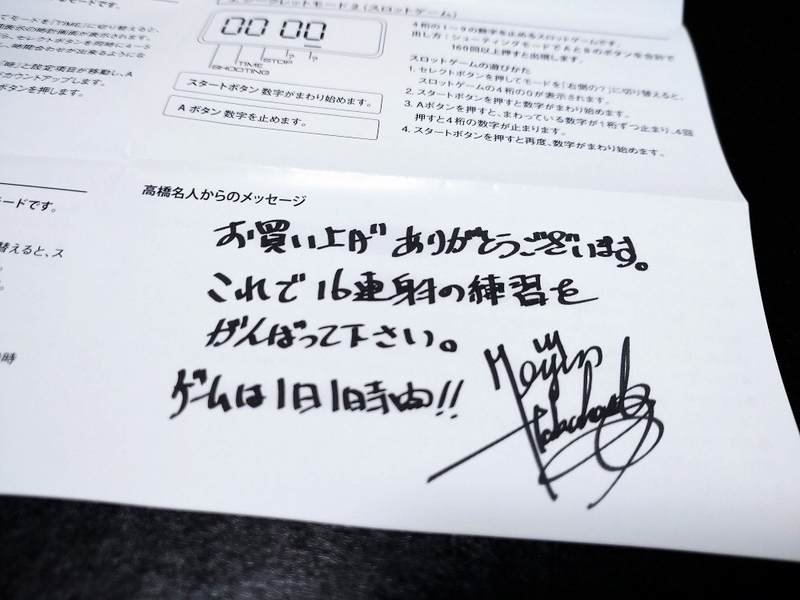 てモードを「TIME」に切り替えると、
セレクトボタンを同時に4~5
カウントアップします。
ボタンを押します。
3. シークレットモード2(スロットゲーム)
00 00
STOP
TIME
SHOOTING
スタートボタン 数字がまわり始めます。
Aボタン 数字を止めます。
4桁の1~9の数字を止めるスロットゲームです。
出し方:シューティングモードでAとBのボタンを合計で
160回以上押すと出現します。
スロットゲームの遊びかた
1. セレクトボタンを押してモードを「右側の?」に切り替えると、
スロットゲームの4桁の0が表示されます。
2. スタートボタンを押すと数字がまわり始めます。
3. Aボタンを押すと、まわっている数字が1桁ずつ止まり、4回
押すと4桁の数字が止まります。
4. スタートボタンを押すと再度、数字がまわり始めます。
モードです。
替えると、ス
高橋名人からのメッセージ
お買い上げ ありがとうございます。
これで16連射の練習を
がんばって下さい。
ゲームは1日1時間!!
Meijin
Takahashi